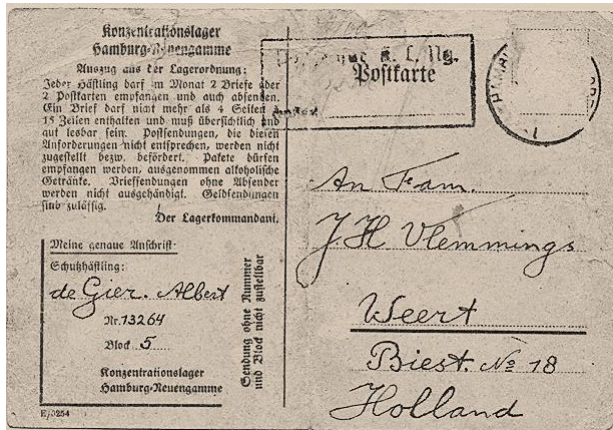 Konzentrationslager
Hamburg-Neuengamme
Auszug aus der Lagerordnung:
Jeder Häftling darf im Monat 2 Briefe oder
2 Postkarten empfangen und auch absenden.
Ein Brief darf nicht mehr als 4 Seiten à
15 Zeilen enthalten und muß übersichtlich und
gut lesbar sein. Postsendungen, die diesen
Anforderungen nicht entsprechen, werden nicht
zugestellt bezw. befördert. Pakete dürfen
empfangen werden, ausgenommen alkoholische
Getränke. Briefsendungen ohne Absender
werden nicht ausgehändigt. Geldsendungen
sind zulässig.
Der Lagerkommandant.
Meine genaue Anschrift:
Schutzhäftling:
de Gier. Albert
Nr. 13264
Block 5
Konzentrationslager
Hamburg-Neuengamme
Sendung ohne Nummer
und Block nicht zustellbar
E/0254
K. L. Ng.
Postkarte
HAMB
An Fam.
J.H Vlemmings
Weert
Biest. No 18
Holland